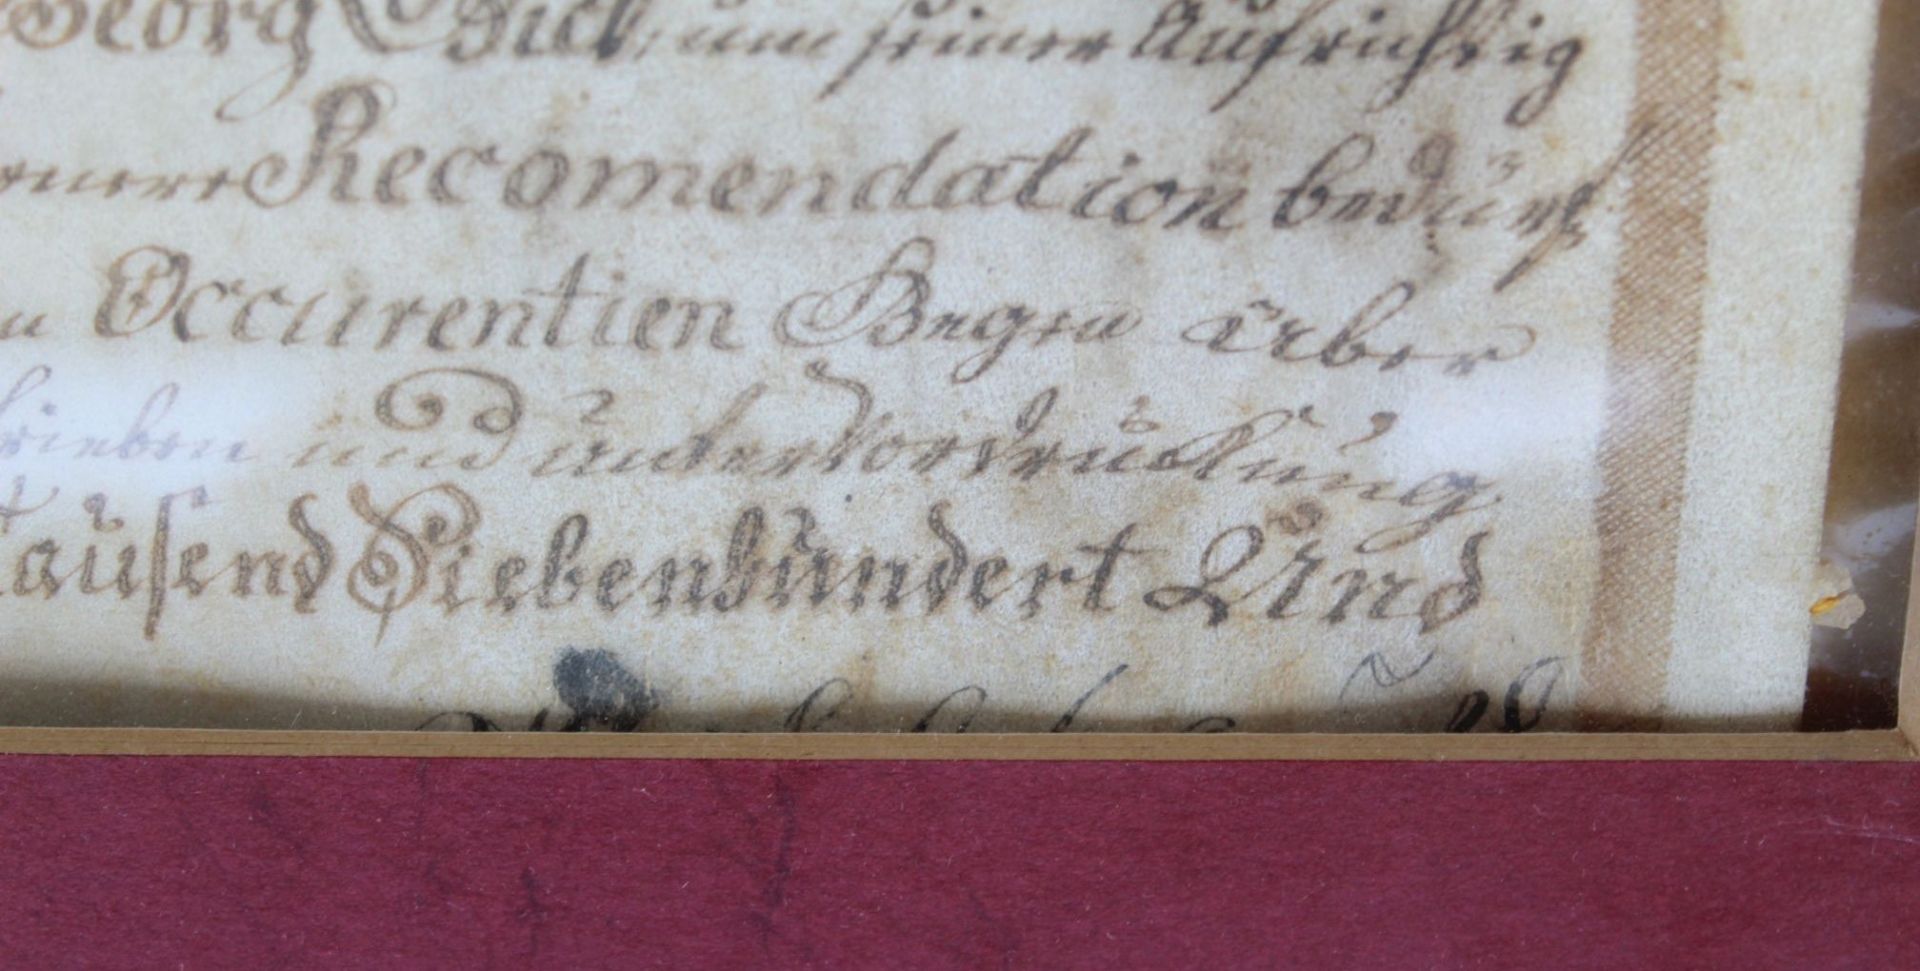 Georg Bick, um seiner Aufrichtig
Recomendation bedürf
Occurentien Gegen über
rieben und unter Vordruckung
tausend Siebenhundert Und